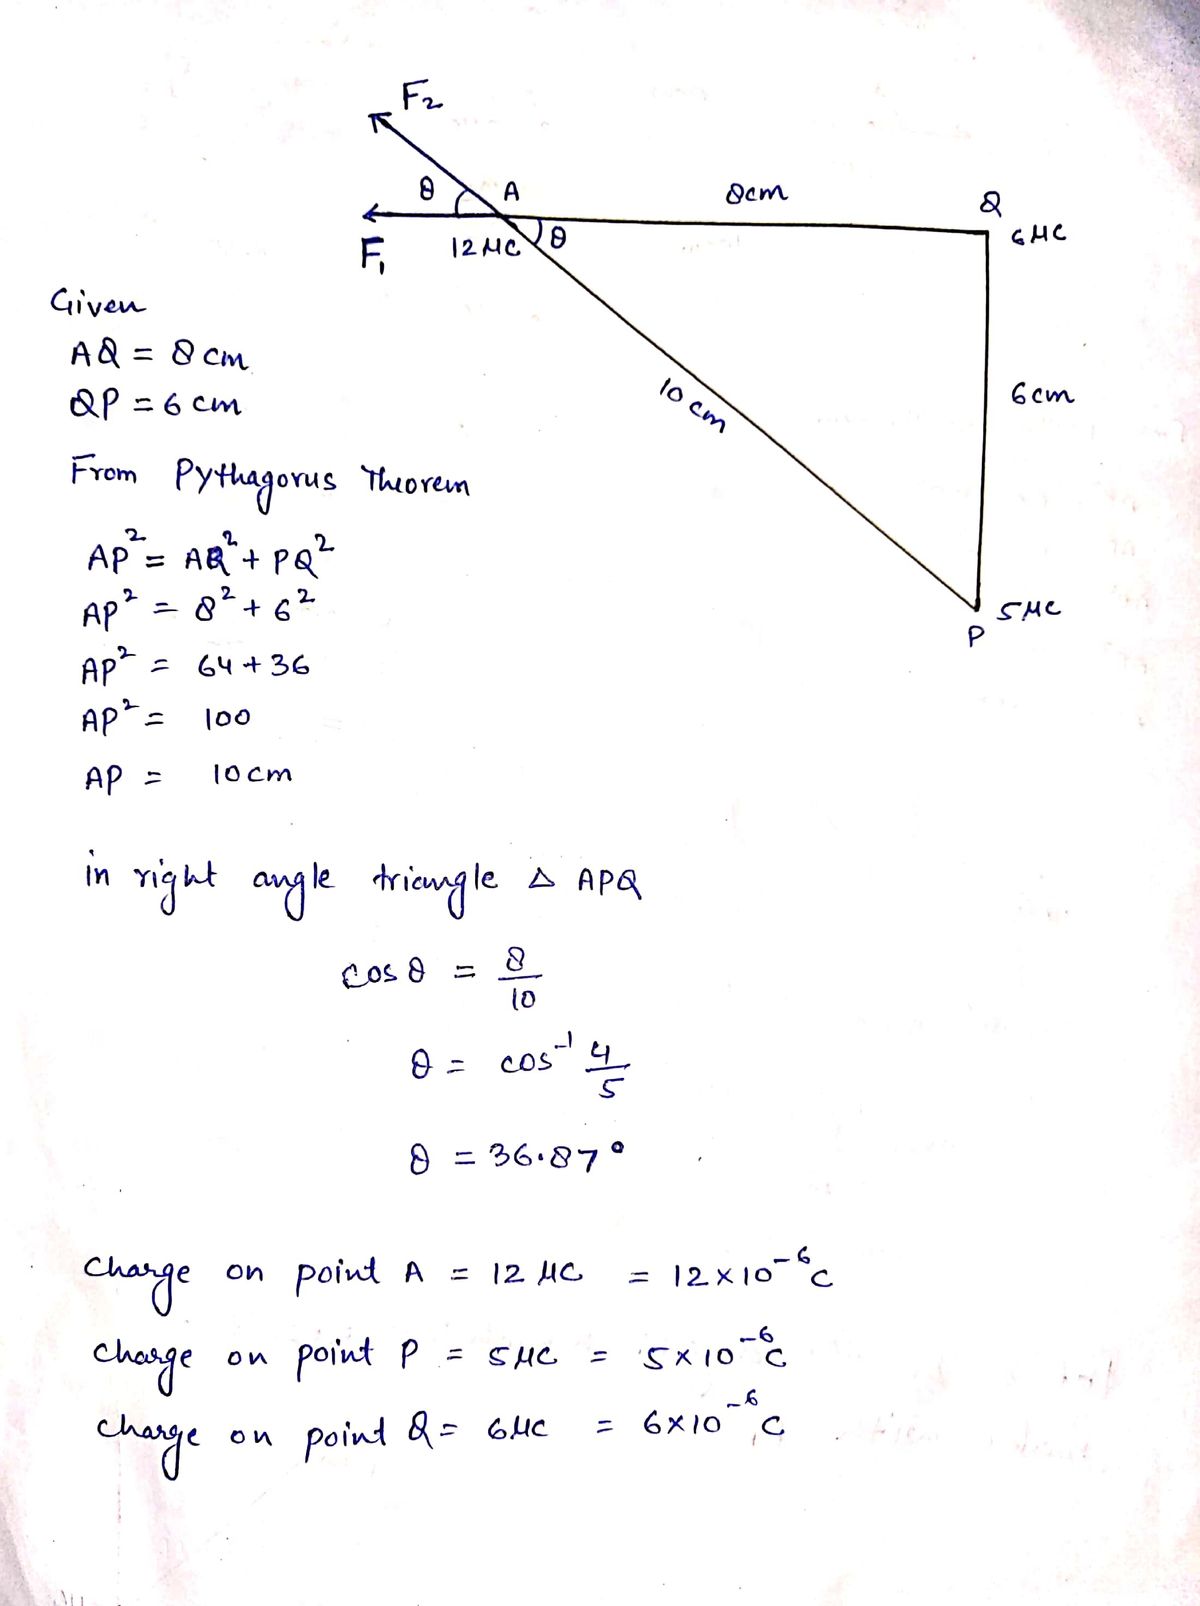 F₂
θ A 8cm Q
F₁ 12 μC θ 6 μC
Given
AQ = 8 cm
QP = 6 cm
10 cm
6cm
From Pythagorus Theorem
AP² = AQ² + PQ²
AP² = 8² + 6²
5 μC
P
AP² = 64 + 36
AP² = 100
AP = 10 cm
in right angle triangle Δ APQ
cos θ = 8/10
θ = cos⁻¹ 4/5
θ = 36.87°
charge on point A = 12 μC = 12 × 10⁻⁶ C
charge on point P = 5 μC = 5 × 10⁻⁶ C
charge on point Q = 6 μC = 6 × 10⁻⁶ C